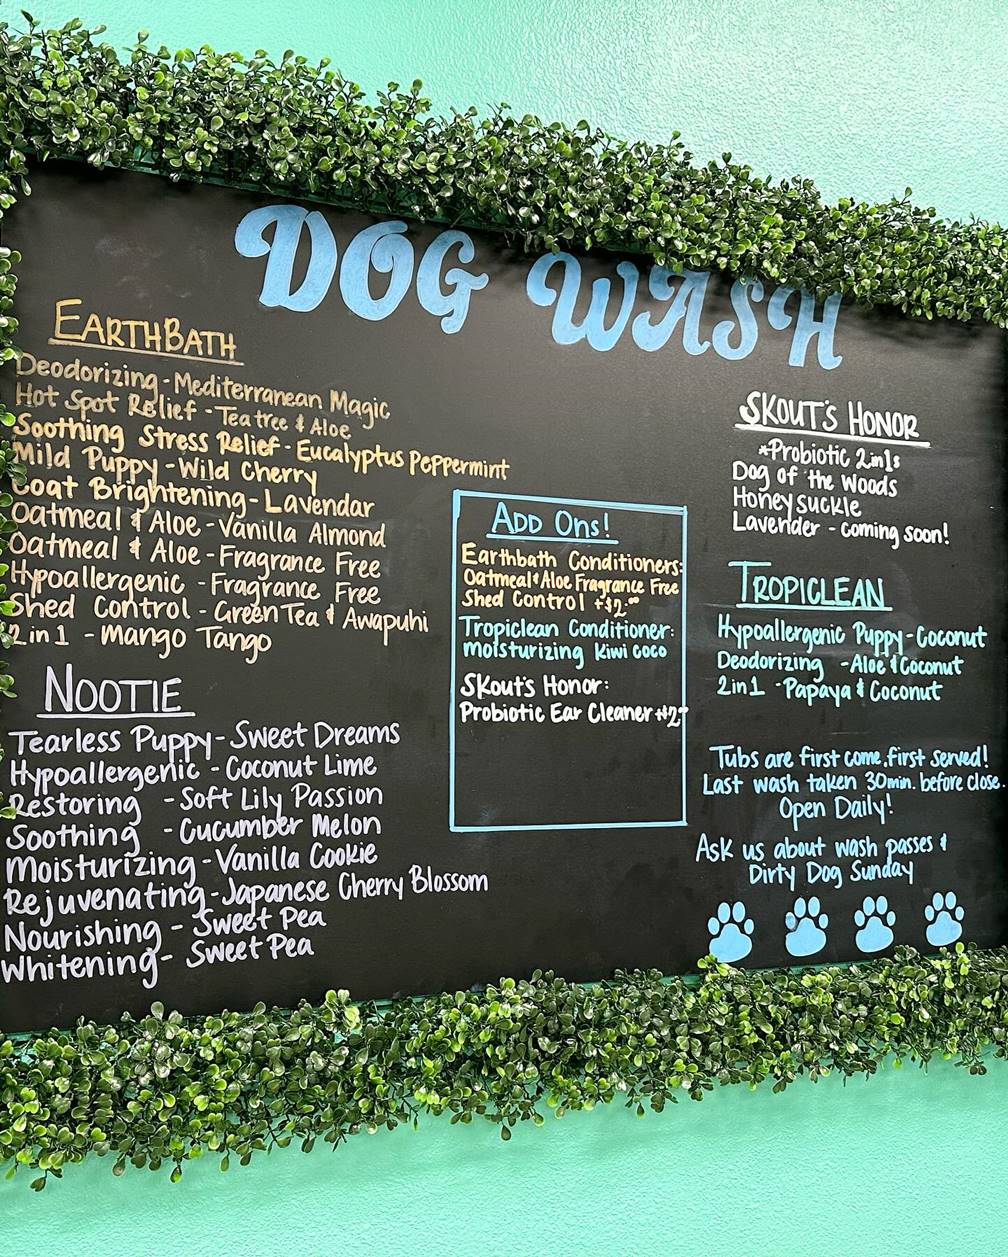 DOG WASH
EARTHBATH
Deodorizing - Mediterranean Magic
Hot Spot Relief - Tea tree & Aloe
Soothing Stress Relief - Eucalyptus Peppermint
Mild Puppy - Wild Cherry
Coat Brightening - Lavendar
Oatmeal & Aloe - Vanilla Almond
Oatmeal & Aloe - Fragrance Free
Hypoallergenic - Fragrance Free
Shed Control - Green Tea & Awapuhi
2 in 1 - Mango Tango
NOOTIE
Tearless Puppy - Sweet Dreams
Hypoallergenic - Coconut Lime
Restoring - Soft Lily Passion
Soothing - Cucumber Melon
Moisturizing - Vanilla Cookie
Rejuvenating - Japanese Cherry Blossom
Nourishing - Sweet Pea
Whitening - Sweet Pea
ADD ONS!
Earthbath Conditioners:
Oatmeal & Aloe Fragrance Free
Shed Control +$2.00
Tropiclean Conditioner:
moisturizing Kiwi Coco
Skout's Honor:
Probiotic Ear Cleaner +$2-
SKOUT'S HONOR
*Probiotic 2in1s
Dog of the Woods
Honeysuckle
Lavender - coming soon!
TROPICLEAN
Hypoallergenic Puppy - Coconut
Deodorizing - Aloe & Coconut
2in1 - Papaya & Coconut
Tubs are first come, first served!
Last wash taken 30min. before close.
Open Daily!
Ask us about wash passes &
Dirty Dog Sunday